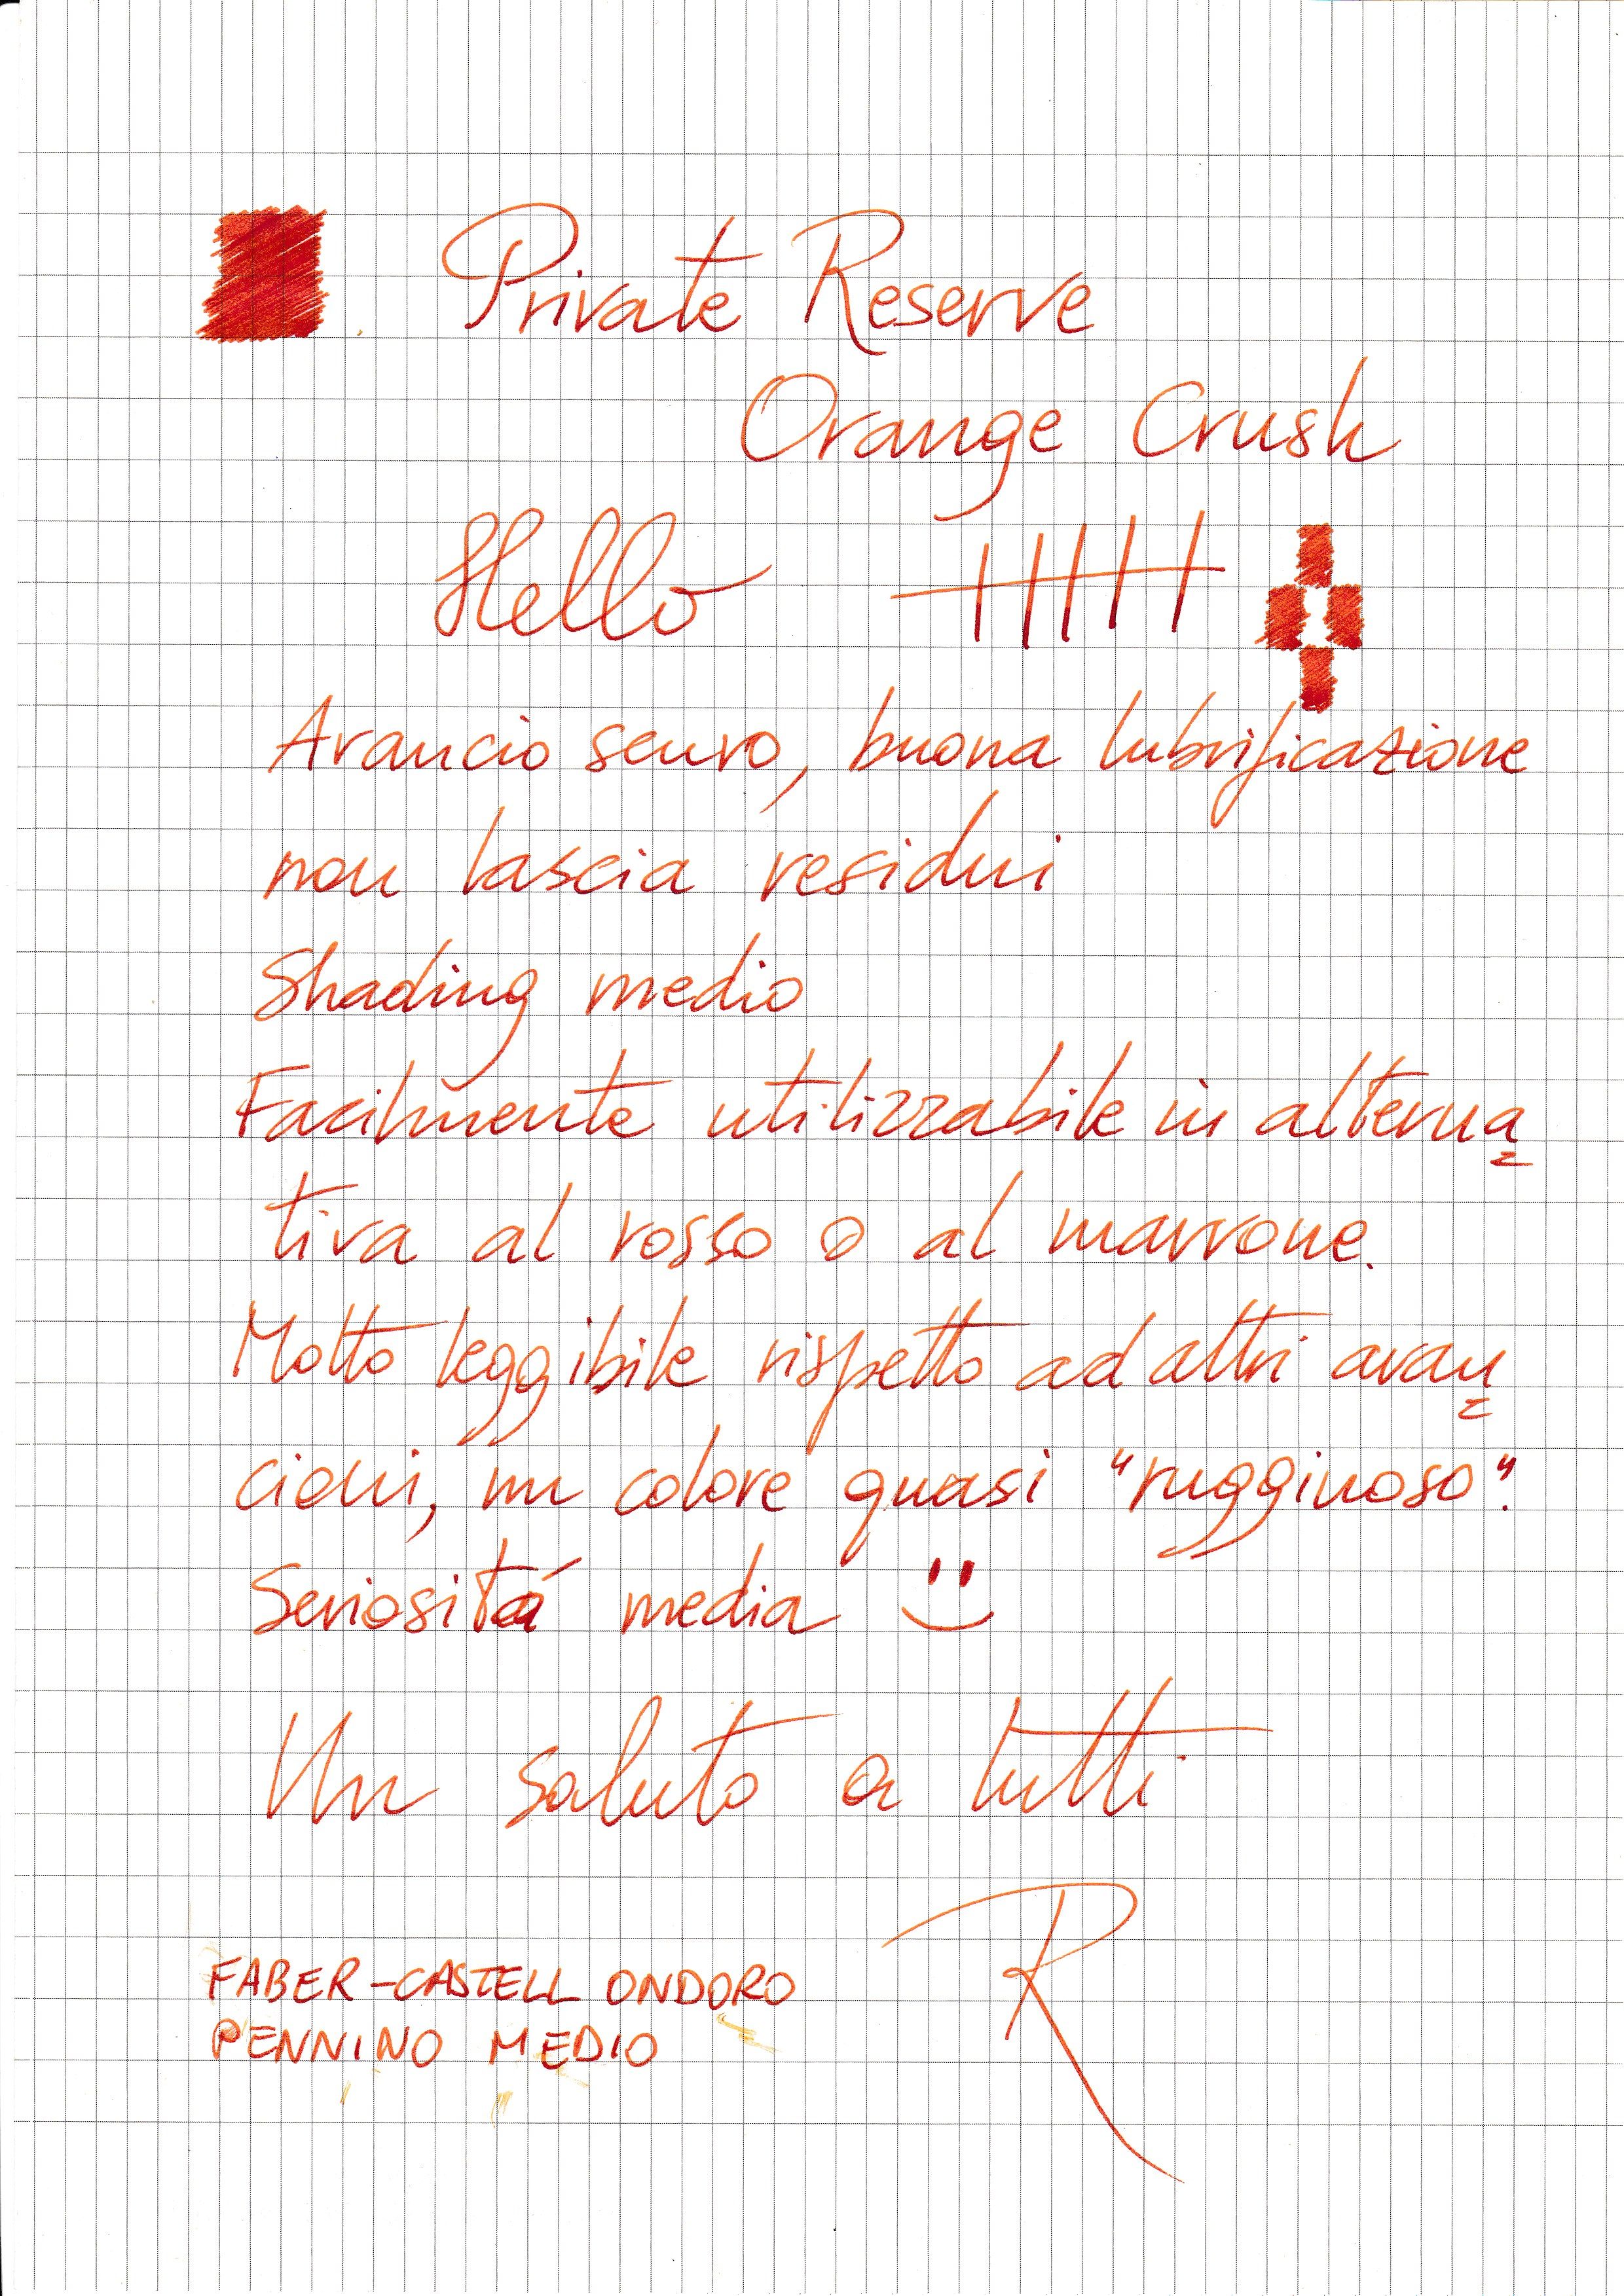 Private Reserve
Orange Crush
Hello
Arancio scuro, buona lubrificazione
non lascia residui
Shading medio
Facilmente utilizzabile in alterna
tiva al rosso o al marrone.
Molto leggibile rispetto ad altri aran
cioni, un colore quasi "rugginoso".
Seriosità media
Un saluto a tutti
R
FABER-CASTELL ONDORO
PENNINO MEDIO